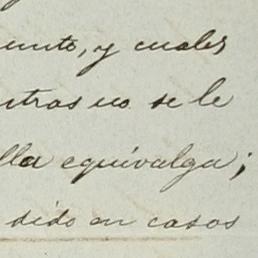 unto, y cuales
ntras no se le
lla equivalga;
sido en casos